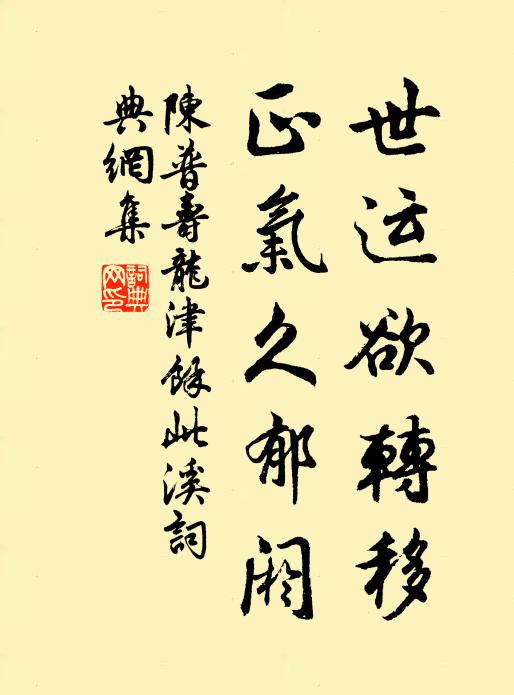 世运欲轉移
正氣久郁阏
陳普壽龍津餘此溪詞
典網集
詞典網印